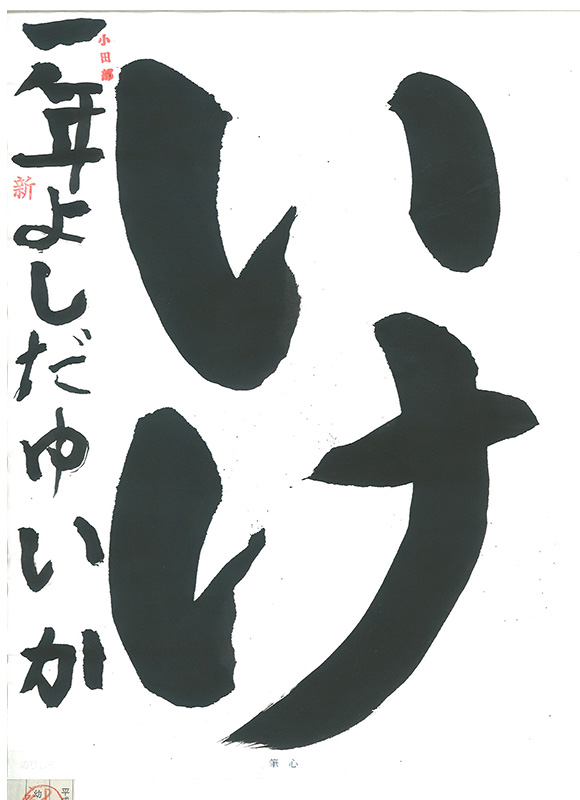 いけ
一年よしだゆいか
小田部
新
心筆
幼